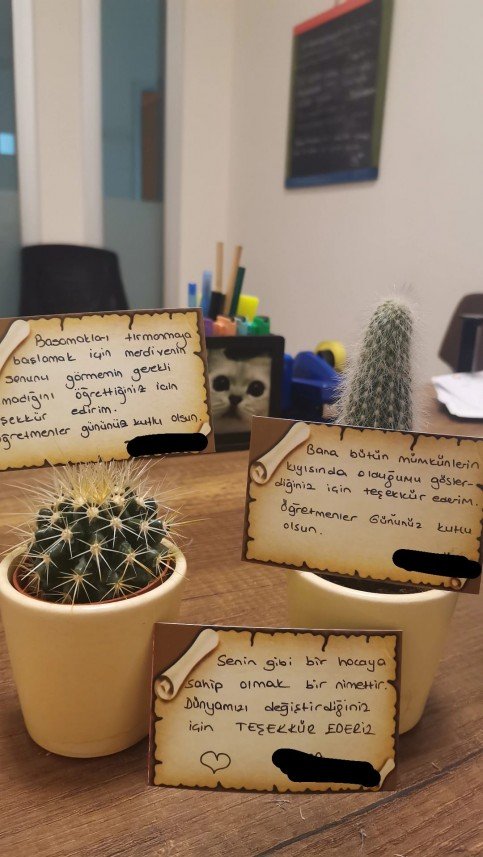 Basamakları tırmanmaya
başlamak için merdivenin
sonunu görmenin gerekli
madığını öğrettiğiniz için
şekkür ederim.
ğretmenler gününüz kutlu olsun.
Bana bütün mümkünlerin
kıyısında olduğumu göster-
diğiniz için teşekkür ederim.
Öğretmenler Gününüz kutlu
olsun.
Senin gibi bir hocaya
sahip olmak bir nimettir.
Dünyamızı değiştirdiğiniz
için TEŞEKKÜR EDERİZ